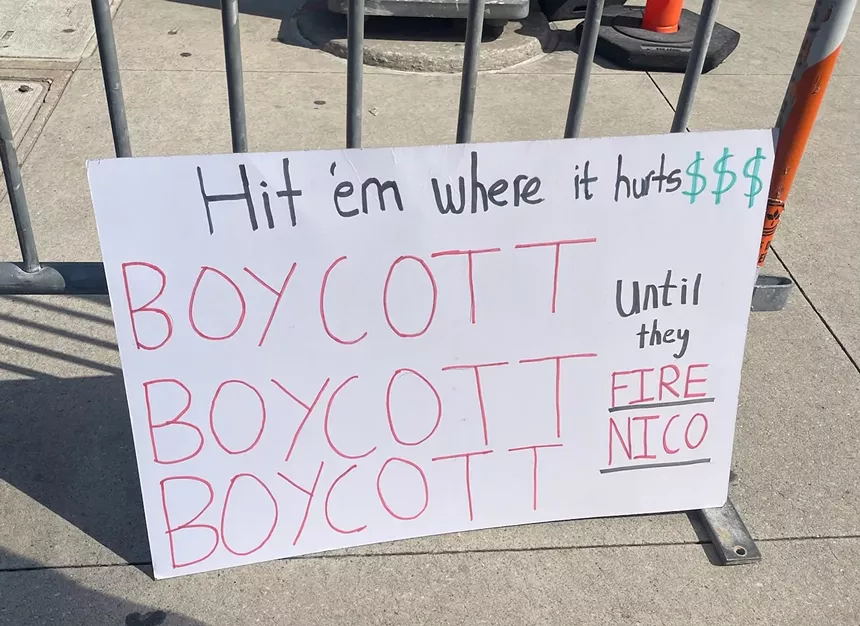 Hit 'em where it hurts $$$
BOYCOTT
BOYCOTT
BOYCOTT
Until
they
FIRE
NICO